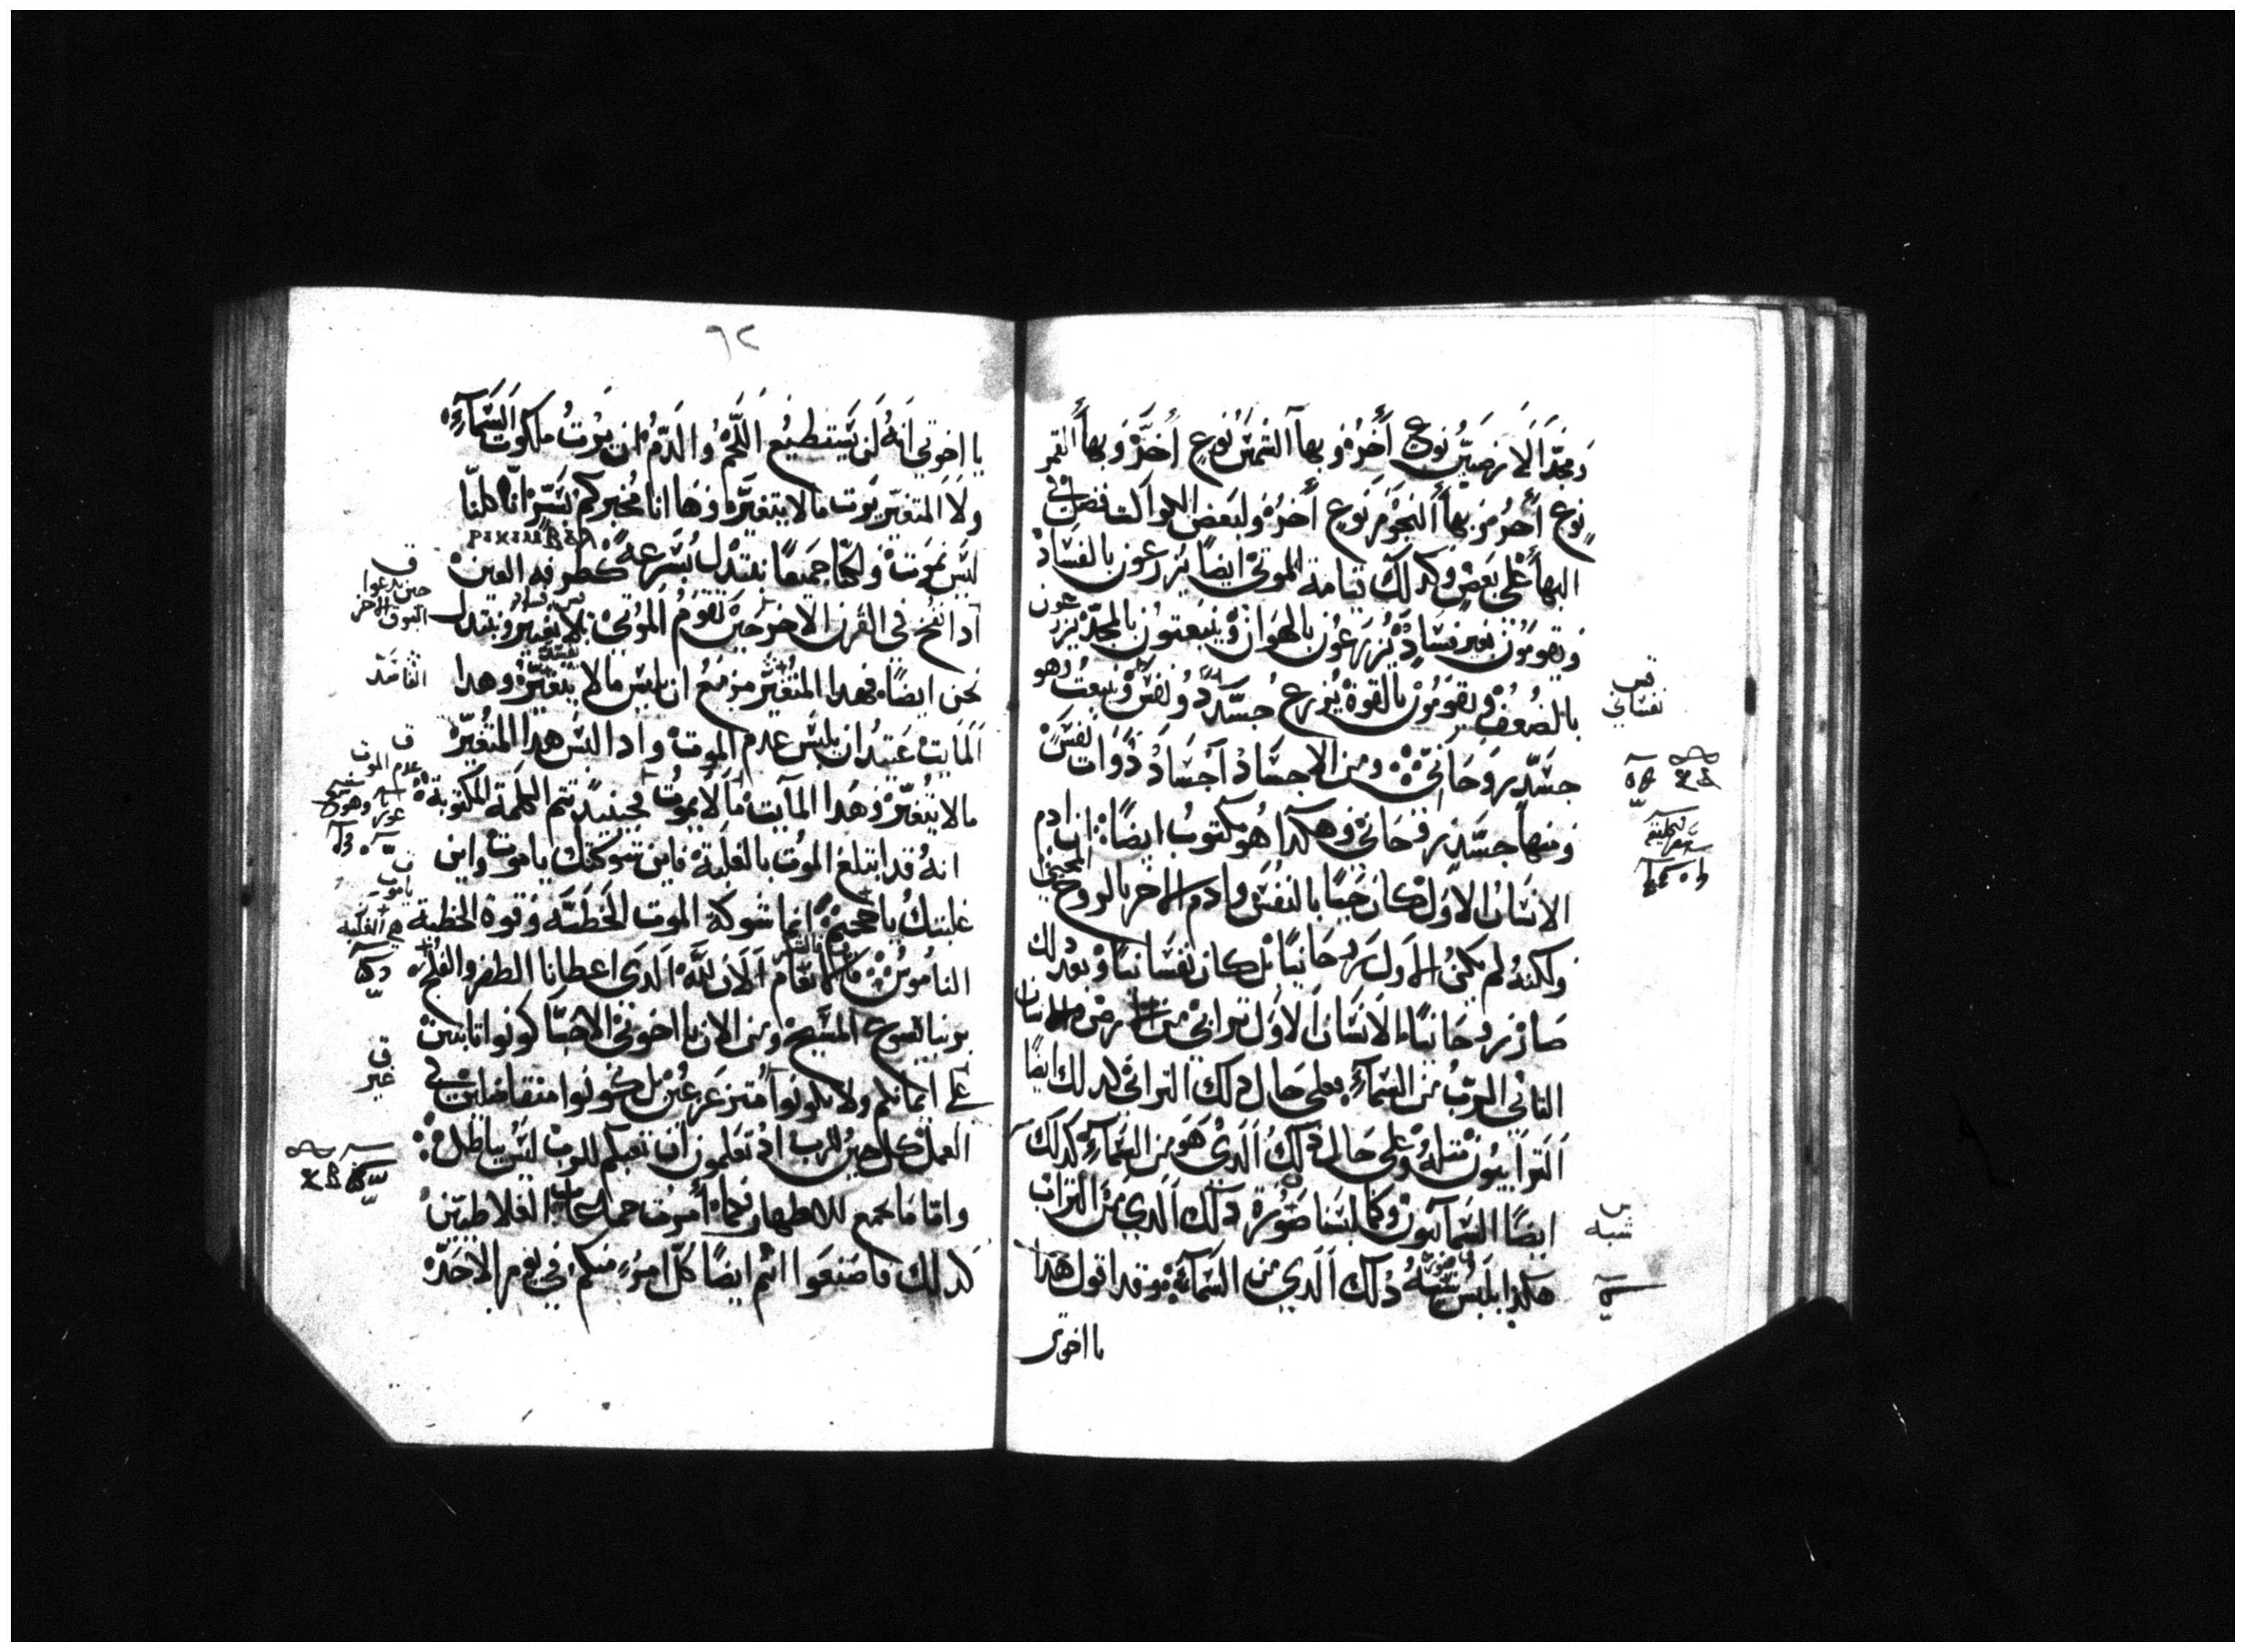 ومجد الارضيين نوع اخر وبهآ الشمس نوع اخر وبهآ القمر
نوع اخر وبهأ النجوم نوع اخر ولبعض الكواكب فضل في
البهأ على بعض وكدلك قيامة الموتى ايضًا يزرعون بالفساد
ويقومون بغير فساد يزرعون بالهوان وينبعتون بالمجد يزرعون
بالضعف ويقومون بالقوة يزرع جسد دو نفس وينبعت وهو
جسد روحاني ومن الاجساد اجساد دوات نفس
ومنها جسد روحاني وهكدا هو مكتوب ايضًا ان ادم
الانسان الاول كان حيًا بالنفس وادم الاخر بالروح المحيي
ولكنه لم يكن الاول روحانيًا بل كان نفسانيًا وبعد دلك
صار روحانيًا الانسان الاول ترابي من الارض والانسان
التاني الرب من السمآء فعلى حال دلك الترابي كدلك ايضًا
الترابيون متله وعلى حال دلك الدي هو من السمآء كدلك
ايضًا السمآيون وكما لبسنا صورة دلك الدي من التراب
هكدا نلبس شبه دلك الدي من السمآء وقد اقول هدا
يا اخوتي
نفساني
شبه
٦٢
يا اخوتي انه لن يستطيع اللحم والدم ان يرت ملكوت السمآء
ولا المتغير يرت ما لا يتغير وها انا مخبركم بسر انا كلنا
ليس نموت ولكنا جميعًا نبتدل بسرعة كطرفة العين
ادا نفخ في القرن الاخر حين تقوم الموتى بلا تغيير ونبتدل
نحن ايضًا فهدا المتغير مزمع ان يلبس ما لا يتغير وهدا
المايت عتيد ان يلبس عدم الموت وادا لبس هدا المتغير
ما لا يتغير وهدا المآيت ما لا يموت فحينيد تتم الكلمة المكتوبة
انه قد ابتلع الموت بالغلبة فاين شوكتك ياموت واين
غلبتك ياجحيم انما شوكة الموت الخطية وقوة الخطية
الناموس فالانعام الان لله الدي اعطانا الظفر والفلج
بربنا يسوع المسيح ومن الان يا اخوتي الاحبا كونوا تابتين
على ايمانكم ولا تكونوا متزعزعين بل كونوا متفاضلين في
العمل كل حين للرب اد تعلمون ان تعبكم للرب ليس باطل
واما ما يجمع للاطهار فكما امرت جماعات الغلاطيين
كدلك فاصنعوا انتم ايضًا كل امرء منكم في يوم الاحد
حين يدعوا
البوق الاخر
الفاسد
عدم الموت
ياموت
غير